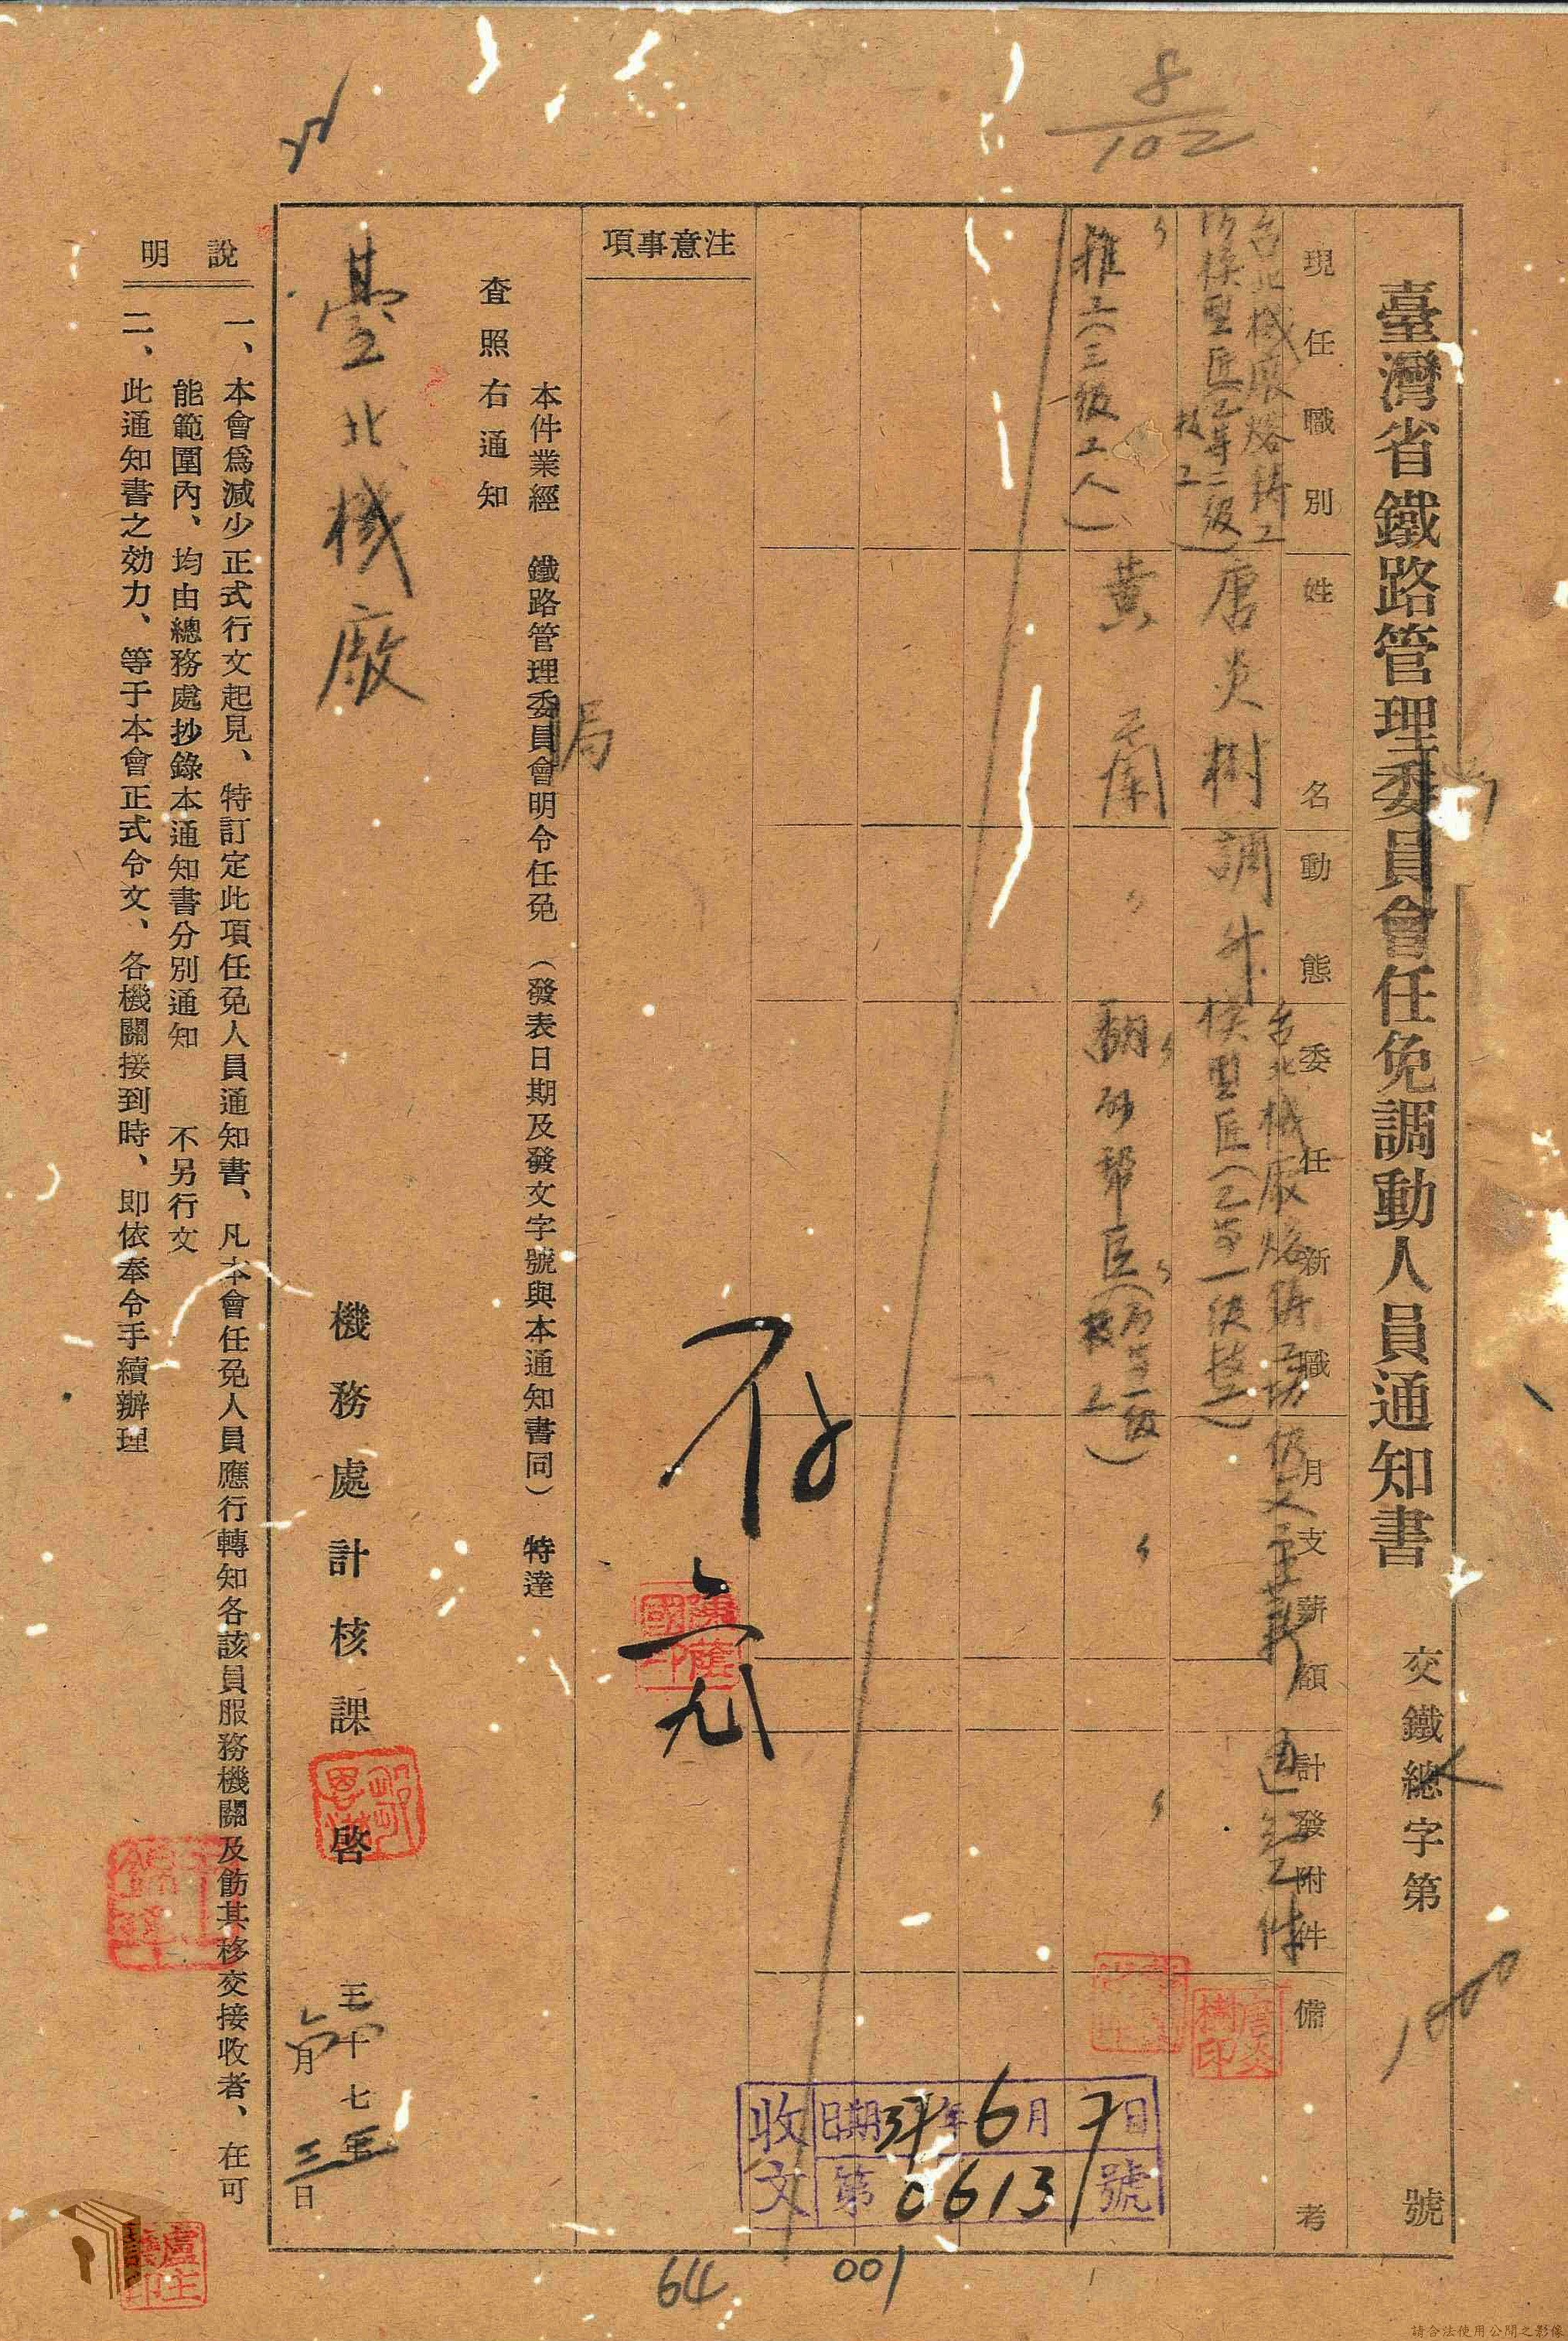 8
102
臺灣省鐵路管理委員會任免調動人員通知書
交鐵總字第 號
現任職別
姓名
動態
委任新職
月支薪額
計發附件
備考
台北機廠熔鑄工
場模型匠(乙等二級
技工)
唐炎樹
調升
台北機廠熔鑄工場
模型匠(乙等一級技工)
仍支原薪
通知乙件
唐炎樹印
推工(三級工人)
黃
翻砂幫匠(
級
技工)
收文
日期37年6月7日
第0613號
注意事項
存
本件業經 鐵路管理委員會明令任免 (發表日期及發文字號與本通知書同) 特達
局
查照右通知
臺北機廠
機務處計核課啓
三十七年
六月三日
說明
一、本會爲減少正式行文起見、特訂定此項任免人員通知書、凡本會任免人員應行轉知各該員服務機關及飭其移交接收者、在可
能範圍內、均由總務處抄錄本通知書分別通知 不另行文
二、此通知書之効力、等于本會正式令文、各機關接到時、即依奉令手續辦理
64
001
請合法使用公開之影像